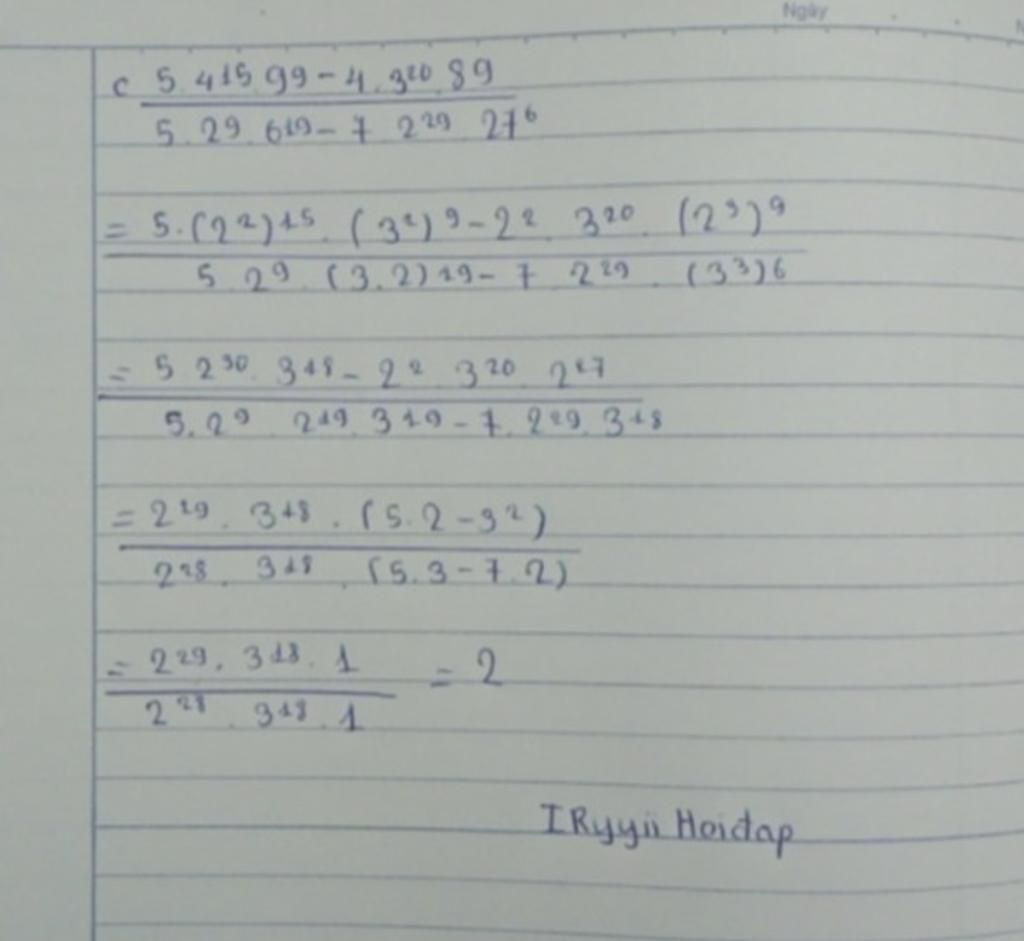 Ngày
c 5. 4¹⁵ 9⁹ - 4. 3²⁰ 8⁹
5. 2⁹. 6¹⁹ - 7 2²⁹ 27⁶
= 5. (2²)¹⁵. (3²)⁹ - 2². 3²⁰. (2³)⁹
5. 2⁹. (3.2)¹⁹ - 7 2²⁹. (3³)⁶
= 5 2³⁰. 3¹⁸ - 2² 3²⁰ 2²⁷
5. 2⁹ 2¹⁹. 3¹⁹ - 7. 2²⁹. 3¹⁸
= 2²⁹. 3¹⁸. (5. 2 - 3²)
2²⁸. 3¹⁸. (5. 3 - 7. 2)
= 2²⁹. 3¹⁸. 1 = 2
2²⁸. 3¹⁸. 1
IRyyii Hoidap